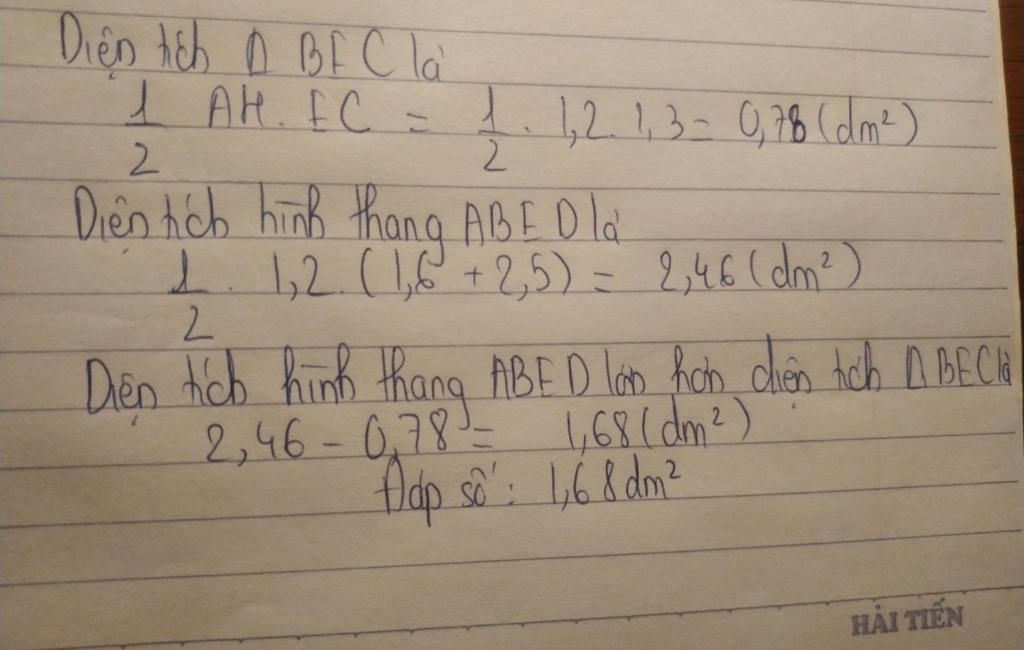 Diện tích Δ BEC là
1/2 AH. EC = 1/2 . 1,2. 1,3 = 0,78 (dm²)
Diện tích hình thang ABED là
1/2 . 1,2. (1,6 + 2,5) = 2,46 (dm²)
Diện tích hình thang ABED lớn hơn diện tích Δ BEC là
2,46 - 0,78 = 1,68 (dm²)
Đáp số : 1,68 dm²
HẢI TIẾN